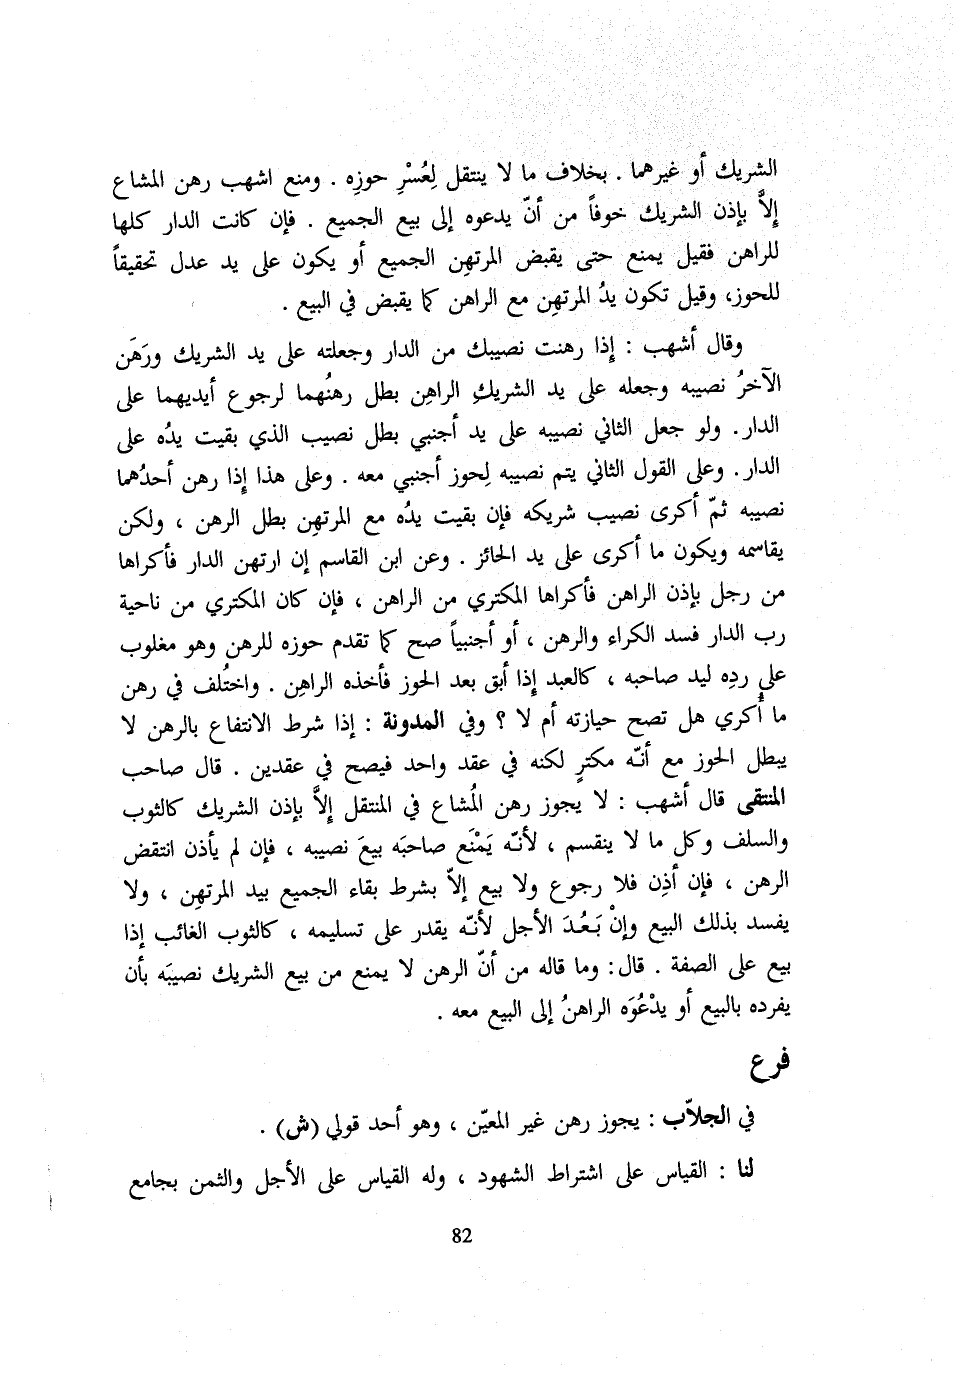 الشريك أو غيرهما . بخلاف ما لا ينتقل لِعُسْرِ حوزِه . ومنع اشهب رهن المشاع
إلاَّ بإذن الشريك خوفاً من أنّ يدعوه إلى بيع الجميع . فإن كانت الدار كلها
للراهن فقيل يمنع حتى يقبض المرتهِن الجميع أو يكون على يد عدل تحقيقاً
للحوز، وقيل تكون يدُ المرتهِن مع الراهن كما يقبض في البيع .
وقال أشهب : إِذا رهنت نصيبك من الدار وجعلته على يد الشريك ورَهَن
الآخرُ نصيبه وجعله على يد الشريكِ الراهِن بطل رهنُهما لرجوع أيديهما على
الدار. ولو جعل الثاني نصيبه على يد أجنبي بطل نصيب الذي بقيت يدُه على
الدار. وعلى القول الثاني يتم نصيبه لِحوز أجنبي معه . وعلى هذا إِذا رهن أحدُهما
نصيبه ثمّ أكرى نصيب شريكه فإن بقيت يدُه مع المرتهِن بطل الرهن ، ولكن
يقاسمه ويكون ما أكرى على يد الحائز . وعن ابن القاسم إن ارتهن الدار فأكراها
من رجل بإذن الراهن فأكراها المكتري من الراهن ، فإن كان المكتري من ناحية
رب الدار فسد الكراء والرهن ، أو أجنبياً صح كما تقدم حوزه للرهن وهو مغلوب
على ردِه ليد صاحبه ، كالعبد إِذا أبق بعد الحوز فأخذه الراهِن . واختُلف في رهن
ما أُكري هل تصح حيازته أم لا ؟ وفي المدونة : إذا شرط الانتفاع بالرهن لا
يبطل الحوز مع أنّه مكترٍ لكنه في عقد واحد فيصح في عقدين . قال صاحب
المنتقى قال أشهب : لا يجوز رهن المُشاع في المنتقل إلاَّ بإذن الشريك كالثوب
والسلف وكل ما لا ينقسم ، لأنّه يَمْنَع صاحبَه بيعَ نصيبه ، فإن لم يأذن انتقض
الرهن ، فإن أذِن فلا رجوع ولا بيع إلاّ بشرط بقاء الجميع بيد المرتهِن ، ولا
يفسد بذلك البيع وإنْ بَعُدَ الأجل لأنّه يقدر على تسليمه ، كالثوب الغائب إذا
بيع على الصفة . قال: وما قاله من أنّ الرهن لا يمنع من بيع الشريك نصيبَه بأن
يفرده بالبيع أو يدْعُوَه الراهنُ إلى البيع معه .
فرع
في الجلاّب : يجوز رهن غير المعيّن ، وهو أحد قولي (ش) .
لنا : القياس على اشتراط الشهود ، وله القياس على الأجل والثمن بجامع
82